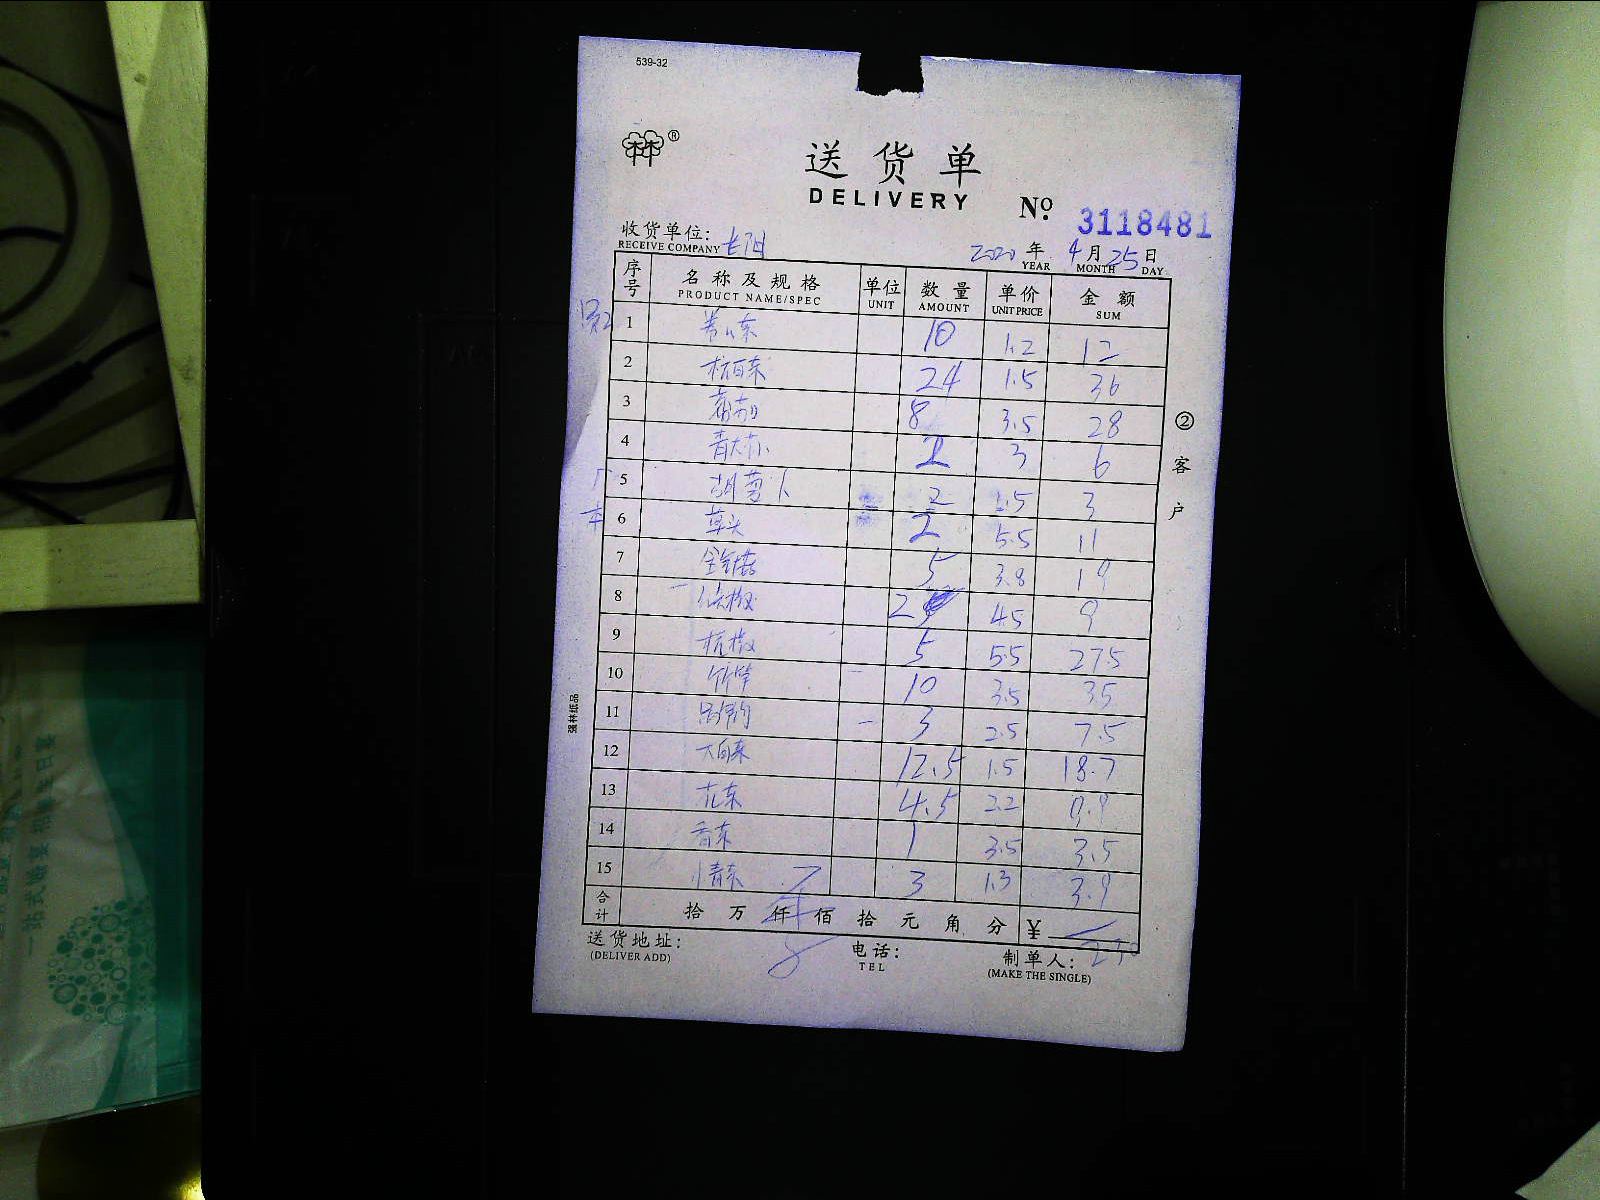 539-32
送货单
DELIVERY
№ 3118481
收货单位: 长阳 2020 年 4 月 25 日
RECEIVE COMPANY YEAR MONTH DAY
序号 名称及规格 单位 数量 单价 金额
PRODUCT NAME/SPEC UNIT AMOUNT UNIT PRICE SUM
1 10 1.2 12
2 杭白菜 24 1.5 36
3 番茄 8 3.5 28
4 青大椒 2 3 6
5 胡萝卜 2 1.5 3
6 草头 2 5.5 11
7 金针菇 5 3.8 19
8 2 4.5 9
9 杭椒 5 5.5 27.5
10 竹笋 10 3.5 35
11 3 2.5 7.5
12 大白菜 12.5 1.5 18.7
13 花菜 4.5 2.2 9.9
14 香菜 1 3.5 3.5
15 小青菜 3 1.3 3.9
合计 拾 万 仟 佰 拾 元 角 分 ¥
送货地址: 电话: 制单人:
(DELIVER ADD) TEL (MAKE THE SINGLE)
②客户
强林纸品
一站式婚宴 相缘生日宴